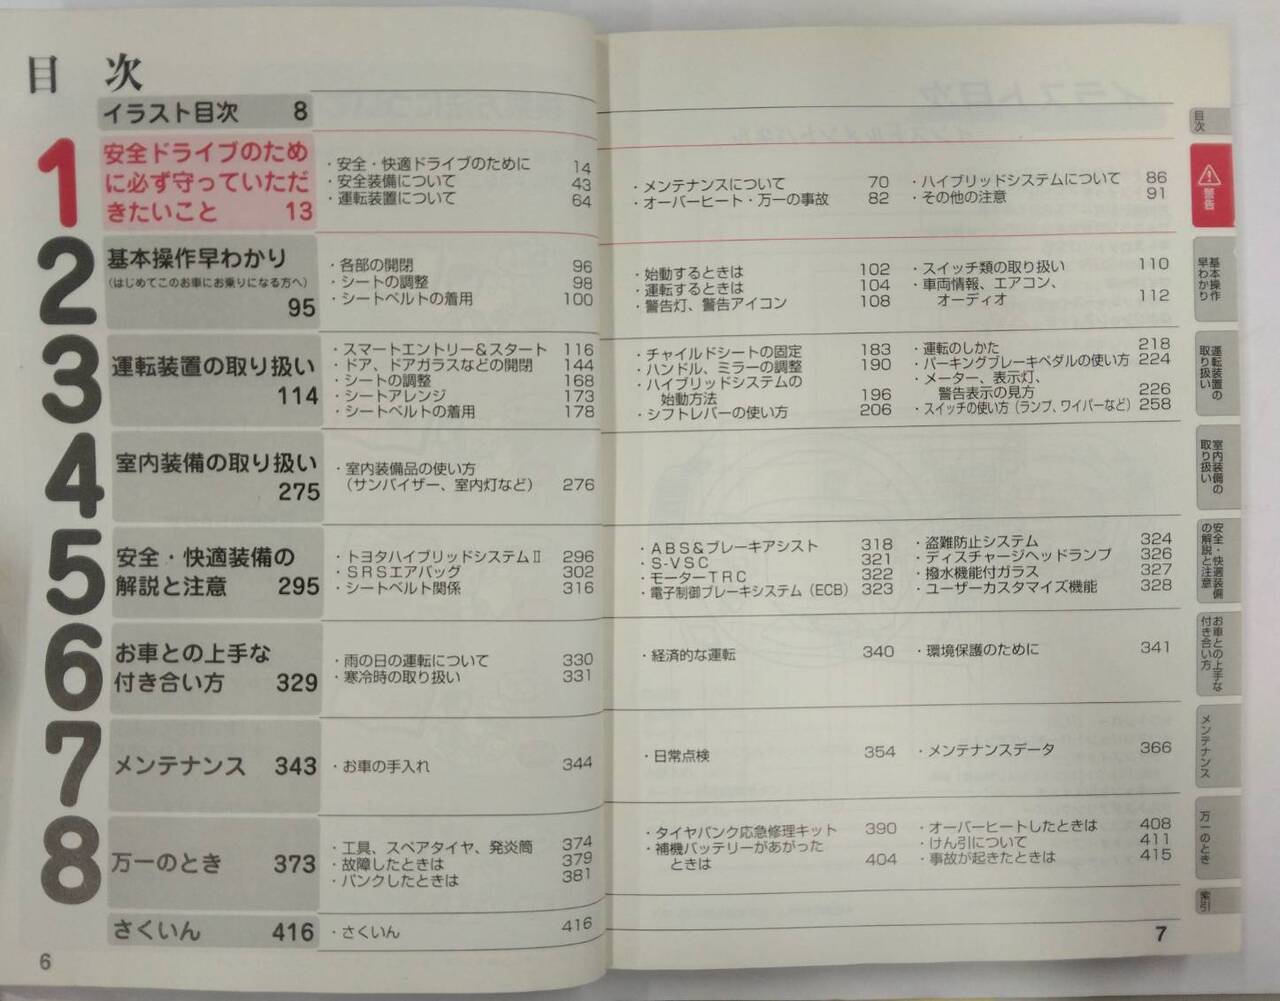 目 次
イラスト目次 8
1
安全ドライブのため
に必ず守っていただ
きたいこと 13
・安全・快適ドライブのために 14
・安全装備について 43
・運転装置について 64
・メンテナンスについて 70
・オーバーヒート・万一の事故 82
・ハイブリッドシステムについて 86
・その他の注意 91
2
基本操作早わかり
(はじめてこのお車にお乗りになる方へ)
95
・各部の開閉 96
・シートの調整 98
・シートベルトの着用 100
・始動するときは 102
・運転するときは 104
・警告灯、警告アイコン 108
・スイッチ類の取り扱い 110
・車両情報、エアコン、
オーディオ 112
3
運転装置の取り扱い
114
・スマートエントリー&スタート 116
・ドア、ドアガラスなどの開閉 144
・シートの調整 168
・シートアレンジ 173
・シートベルトの着用 178
・チャイルドシートの固定 183
・ハンドル、ミラーの調整 190
・ハイブリッドシステムの
始動方法 196
・シフトレバーの使い方 206
・運転のしかた 218
・パーキングブレーキペダルの使い方 224
・メーター、表示灯、
警告表示の見方 226
・スイッチの使い方(ランプ、ワイパーなど) 258
4
室内装備の取り扱い
275
・室内装備品の使い方
(サンバイザー、室内灯など) 276
5
安全・快適装備の
解説と注意 295
・トヨタハイブリッドシステムⅡ 296
・SRSエアバッグ 302
・シートベルト関係 316
・ABS&ブレーキアシスト 318
・S-VSC 321
・モーターTRC 322
・電子制御ブレーキシステム(ECB) 323
・盗難防止システム 324
・ディスチャージヘッドランプ 326
・撥水機能付ガラス 327
・ユーザーカスタマイズ機能 328
6
お車との上手な
付き合い方 329
・雨の日の運転について 330
・寒冷時の取り扱い 331
・経済的な運転 340
・環境保護のために 341
7
メンテナンス 343
・お車の手入れ 344
・日常点検 354
・メンテナンスデータ 366
8
万一のとき 373
・工具、スペアタイヤ、発炎筒 374
・故障したときは 379
・パンクしたときは 381
・タイヤパンク応急修理キット 390
・補機バッテリーがあがった
ときは 404
・オーバーヒートしたときは 408
・けん引について 411
・事故が起きたときは 415
さくいん 416
・さくいん 416
6
7
目次
警告
基本操作
早わかり
運転装置の
取り扱い
室内装備の
取り扱い
安全・快適装備
の解説と注意
お車との上手な
付き合い方
メンテナンス
万一のとき
索引